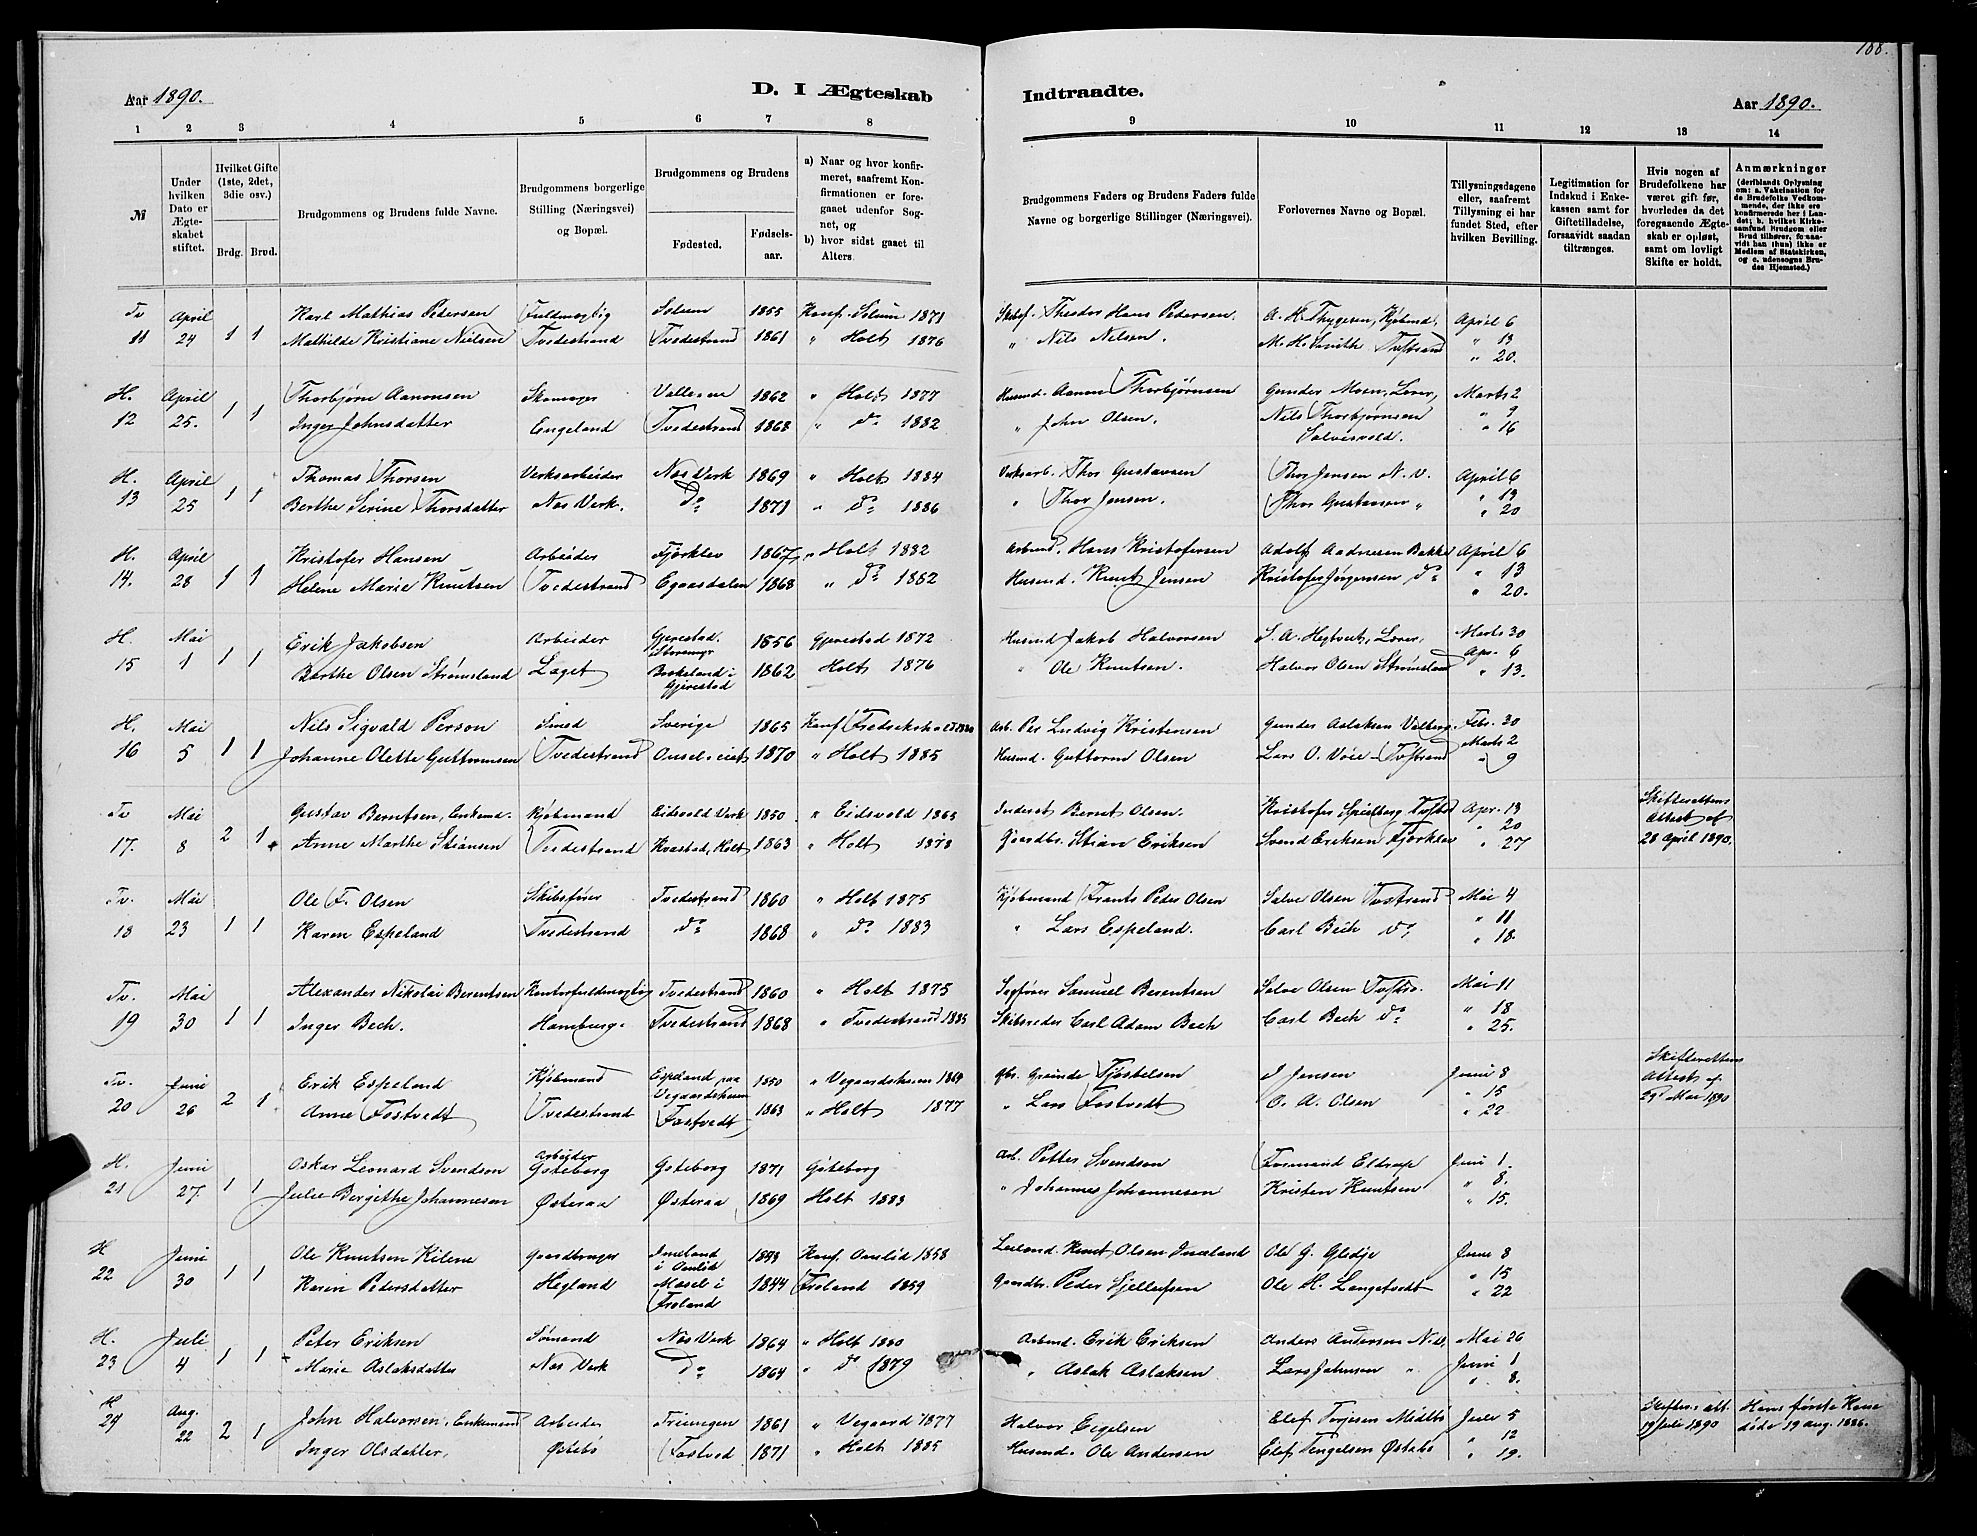 188.
Aar 1890.
D. I Ægteskab Indtraadte.
Aar 1890.
1 2 3 4 5 6 7 8 9 10 11 12 13 14
№
Under hvilken Dato er Ægteskabet stiftet.
Hvilket Gifte (1ste, 2det, 3die osv.)
Brdg. Brud.
Brudgommens og Brudens fulde Navne.
Brudgommens borgerlige Stilling (Næringsvei) og Bopæl.
Brudgommens og Brudens
Fødested.
Fødselsaar.
a) Naar og hvor konfirmeret, saafremt Konfirmationen er foregaaet udenfor Sognet, og
b) hvor sidst gaaet til Alters.
Brudgommens Faders og Brudens Faders fulde Navne og borgerlige Stillinger (Næringsvei).
Forlovernes Navne og Bopæl.
Tillysningsdagene eller, saafremt Tillysning ei har fundet Sted, efter hvilken Bevilling.
Legitimation for Indskud i Enkekassen samt for Giftetilladelse, forsaavidt saadan tiltrænges.
Hvis nogen af Brudefolkene har været gift før, hvorledes da det foregaaende Ægteskab er opløst, samt om lovligt Skifte er holdt.
Anmærkninger (deriblandt Oplysning om: a. Vakcination for de Brudefolks Vedkommende, der ikke ere konfirmerede her i Landet; b. hvilket Kirkesamfund Brudgom eller Brud tilhører, forsaavidt han (hun) ikke er Medlem af Statskirken, og c. udensogns Brudes Hjemsted.)
Tv April Karl Mathias Petersen Fuldmægtig Solum 1855 Konf. Solum 1871 Skibsf. Theodor Hans Pedersen. A. H. Thygesen, Kjøbmd. April 6
11 24 1 1 Mathilde Kristiane Nielsen Tvedestrand Tvedestrand 1861 " Holt 1876 " Nils Nilsen. M. H. Smith Tvstrand " 13
" 20.
H. April Thorbjørn Aanonsen Skomager 1862 " Holt 1877 Husmd. Aanon Thorbjørnsen Gunder Moen, Lærer, Marts 2
12 25. 1 1 Inger Johnsdatter Engeland Tvedestrand 1868 " do 1882 " John Olsen. Nils Thorbjørnsen " 9
Salvesvold. " 16
H. April Thomas Thorsen Verksarbeider Næs Verk 1869 " Holt 1884 Verksarb. Thor Gustavsen Thor Jensen N. V. April 6
13 25 1 1 Berthe Serine Thorsdatter Næs Verk. do 1871 " do 1886 " Thor Jensen. Thor Gustavsen " " 13
" 20
H. April Kristofer Hansen Arbeider Fjærklev 1867 " Holt 1882 Arbmd. Hans Kristofersen Adolf Aadnesen Bakke April 6
14. 28 1 1 Helene Marie Knutsen Tvedestrand Egaasdalen 1868 " do 1882 Husmd. Knut Jensen Kristofer Jørgensen do " 13
" 20.
H. Mai Erik Jakobsen Arbeider Gjerestad. 1856 Gjerestad 1872 Husmd Jakob Halvorsen S. A. Hegtvedt, Lærer, Marts 30
15 1 1 1 Berthe Olsen Strømsland Laget Brokeland i Gjerestad 1862 Holt 1876 " Ole Knutsen. Halvor Olsen Strømsland Apr. 6
" 13.
H. Mai Nils Sigvald Person Smed Sverige 1865 Konf Arb. Per Ludvig Kristensen Gunder Aslaksen Febr. 30
16 5 1 1 Johanne Olette Guttormsen Tvedestrand 1870 " Holt 1885 Husmd. Guttorm Olsen Lars O. Voie – Tvstrand Marts 2
" 9
Tv Mai Gustav Berntsen, Enkemd. Kjøbmand Eidsvold Værk 1850 " Eidsvold 1865 Inderst Bernt Olsen. Kristofer Speilberg Tvstrd Apr. 13 Skifterettens
17. 8 2 1 Anne Marthe Stiansen Tvedestrand Kvastad, Holt 1863 " Holt 1878 Gaardbr. Stian Eriksen Svend Eriksen Fjærklev " 20 Attest af
" 27 28 April 1890.
Tv. Mai Ole F. Olsen Skibsfører Tvedestrand 1860 " Holt 1875 Kjøbmand Frants Peder Olsen Salve Olsen Tvstrand Mai 4
18 23 1 1 Karen Espeland Tvedestrand do 1868 " do 1883 " Lars Espeland. Carl Bech do " 11
" 18.
Tv. Mai Alexander Nikolai Berentsen Kontorfuldmægtig Tvedestrand 1860 " Holt 1875 Sogfører Samuel Berentsen Salve Olsen Tvstr. Mai 11
19 30 1 1 Inger Bech. Hamburg. Tvedestrand 1868 " Tvedestrand 1885 Skibsreder Carl Adam Bech Carl Bech do " 18
" 25.
Tv. Juni Erik Espeland Kjøbmand Espeland paa Vegaardsheien 1850 " Vegaardsheien 1864 Gbr. Graunde Tjøstelsen J Jensen Juni 8 Skifterettens
20 26 2 1 Anne Fostvedt Tvedestrand Fostvedt 1863 " Holt 1877 " Lars Fostvedt O. A. Olsen " 15 Attest af
" 22 29 Mai 1890
H. Juni Oskar Leonard Svendson Arbeider Gøteborg Gøteborg 1871 Gøteborg Arb. Petter Svendson Formand Eldrup Juni 1.
21 27. 1 1 Julie Bergithe Johannesen Østeraa Østeraa 1869 Holt 1883 " Johannes Johannesen Kristen Knutsen " 8.
" 15.
H Juni Ole Knutsen Kilene Gaardbruger Imeland i Omlid 1843 Konf. Omlid 1858 Leilænd. Knut Olsen Imeland Ole G. Gledje Juni 8
22 30 1 1 Karen Pedersdatter Hegland Mosel i Froland 1844 Froland 1859 Gaardbr. Peder Gjellufsen Ole H. Langetvedt " 15
" 22
H. Juli Peter Eriksen Sømand Næs Verk 1864 " Holt 1880 Arbmd. Erik Eriksen Anders Andersen N. V, Mai 26
23 4 1 1 Marie Aslaksdatter Næs Verk do 1864 " do 1879 " Aslak Aslaksen Lars Johnsen " Juni 1
" 8.
H Aug. John Halvorsen, Enkemand Arbeider 1861 " Vegaard 1877 Halvor Eigelsen Elef Terjesen Midtbø Juli 5 Skifter. att. Hans første Kone
24 22 2 1 Inger Olsdatter, Østebø Fostved 1871 " Holt 1885 Husmd. Ole Andersen Elef Tengelsen Østebø " 12 19 Juli 1890 døde 19 aug. 1886.
" 19.